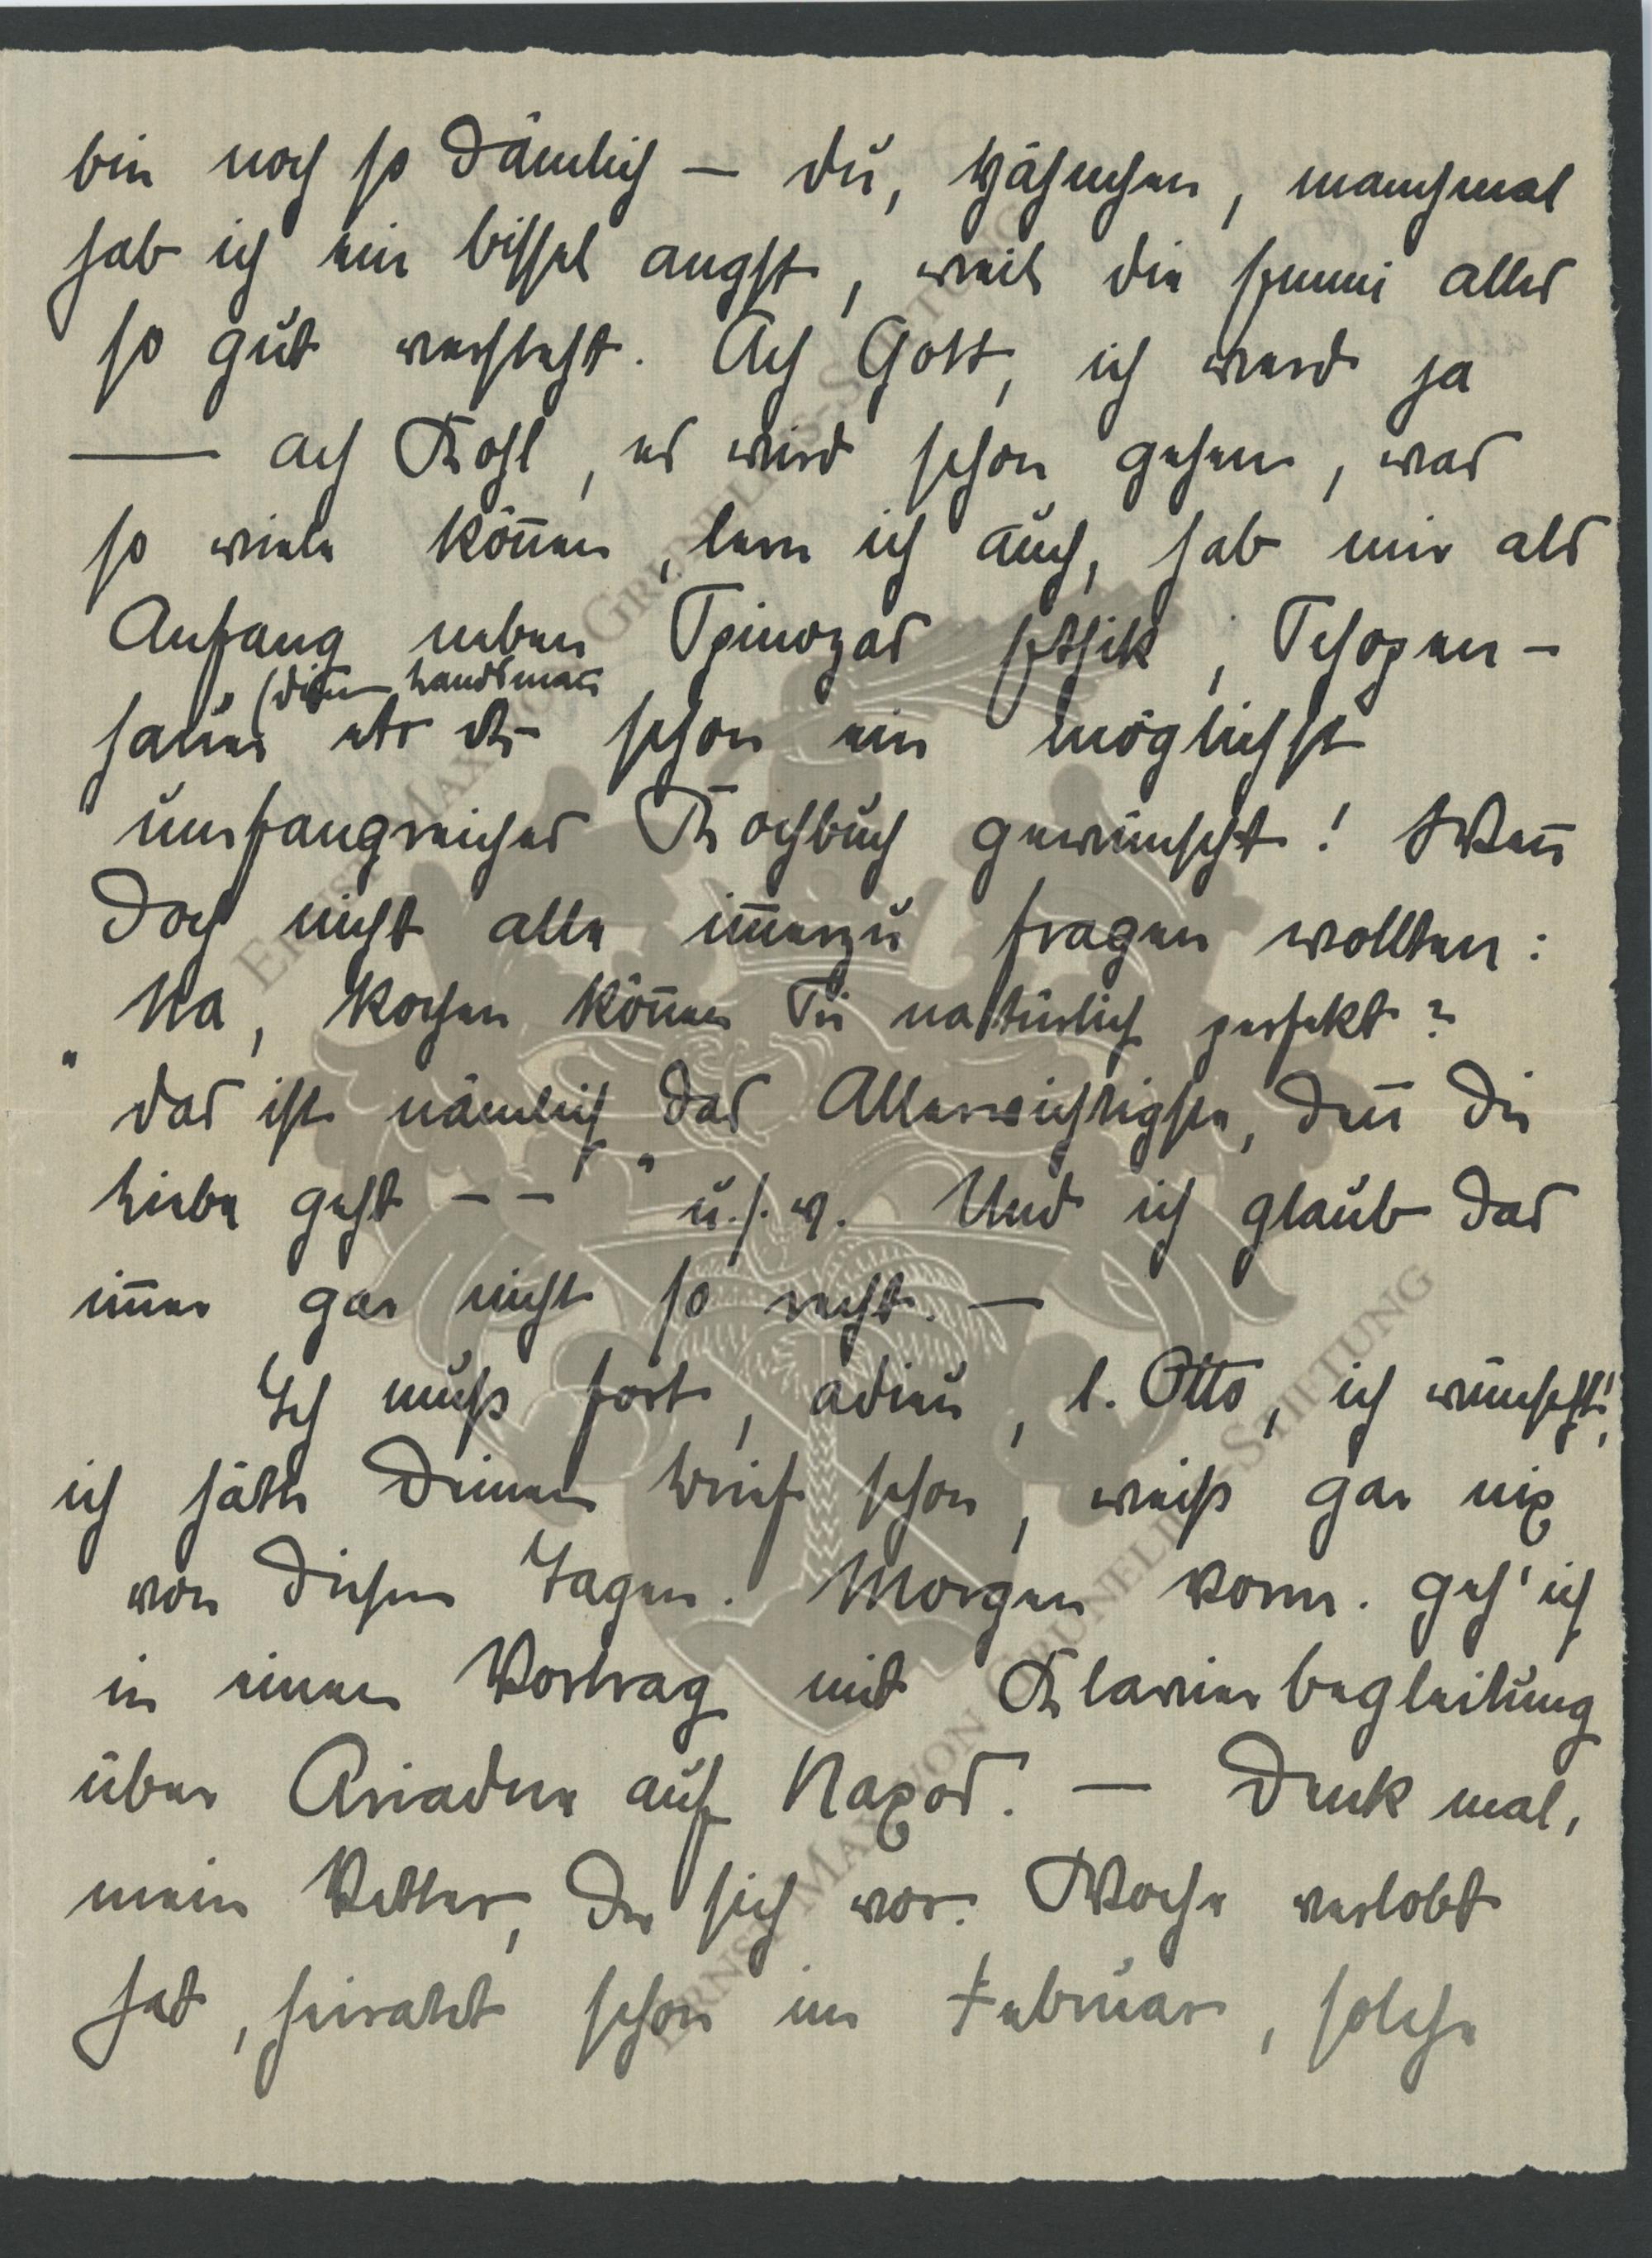 bin noch so dämlich – du, Hähnchen, manchmal
hab ich ein bissel angst, weil die Emmi alles
so gut versteht. Ach Gott, ich werd ja
— ach Kohl, es wird schon gehen, was
so viele können, lern ich auch, hab mir als
Anfang neben Spinozas Ethik, Schopen-
(dein Landsmann
hauer etc etc schon ein möglichst
umfangreiches Kochbuch gewünscht! Wenn
doch nicht alle immerzu fragen wollten:
"Na, kochen können Sie natürlich perfekt?
das ist nämlich das Allerwichtigste, denn die
Liebe geht – – " u.s.w. Und ich glaub das
immer gar nicht so recht. –
Ich muß fort, adieu, l. Otto, ich wünscht',
ich hätte Deinen Brief schon, weiß gar nix
von diesen Tagen. Morgen vorm. geh' ich
in einen Vortrag mit Klavierbegleitung
über Ariadne auf Naxos. – Denk mal,
mein Vetter, der sich vor. Woche verlobt
hat, heiratet schon im Februar, solche
ERNST MAX VON GRUNELIUS-STIFTUNG
ERNST MAX VON GRUNELIUS-STIFTUNG